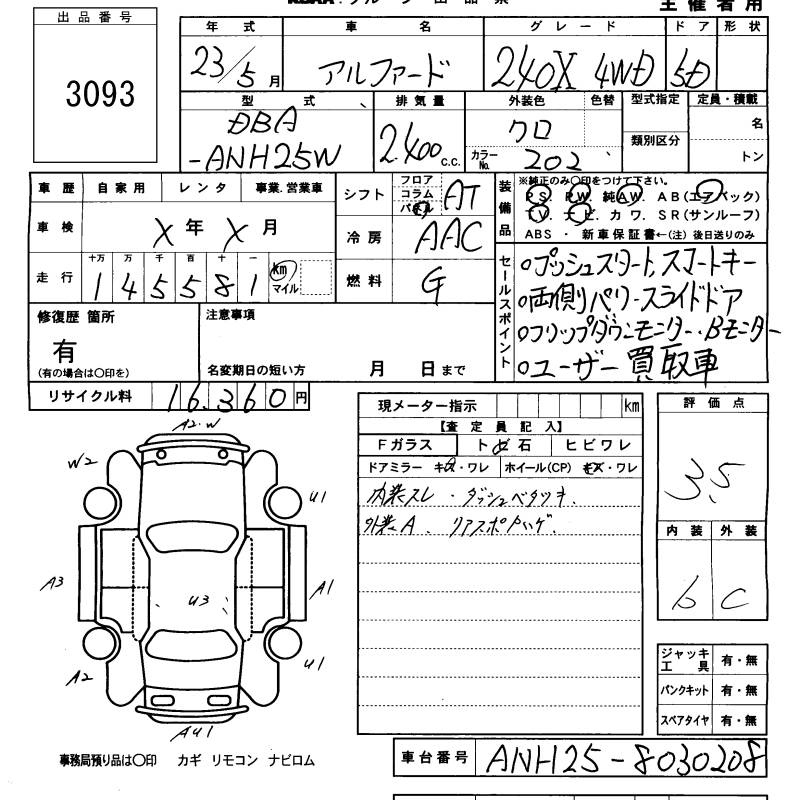 主催者用
出品番号
3093
年式 車名 グレード ドア 形状
23/5月 アルファード 240X 4WD 5D
型式 排気量 外装色 色替 型式指定 定員・積載
DBA -ANH25W 2.400 c.c. クロ カラーNo. 202 類別区分 名 トン
車歴 自家用 レンタ 事業.営業車
車検 X年X月
十万 万 千 百 十 一
走行 1 4 5 5 8 1 km マイル
シフト フロア コラム パネル AT
冷房 AAC
燃料 G
装備品 ※純正のみ〇印をつけて下さい。
PS. PW. 純AW. AB(エアバック)
TV. ナビ. カワ. SR(サンルーフ)
ABS ・ 新車保証書←(注) 後日送りのみ
セールスポイント
○プッシュスタート,スマートキー
○両側パワースライドドア
○フリップダウンモニター・Bモニター
○ユーザー買取車
修復歴 箇所
有
(有の場合は〇印を)
注意事項
名変期日の短い方 月 日まで
リサイクル料 16.360円
現メーター指示 km
【査定員記入】
Fガラス トビ石 ヒビワレ
ドアミラー キズ・ワレ ホイール(CP) キズ・ワレ
内装スレ・ダッシュベタツキ.
外装A. リアスポハゲ.
評価点
3.5
内装 外装
b C
A2.W
W2
U1
A3
U3
A1
A2
U1
AU1
ジャッキ工具 有・無
パンクキット 有・無
スペアタイヤ 有・無
事務局預り品は〇印 カギ リモコン ナビロム
車台番号 ANH25-8030208